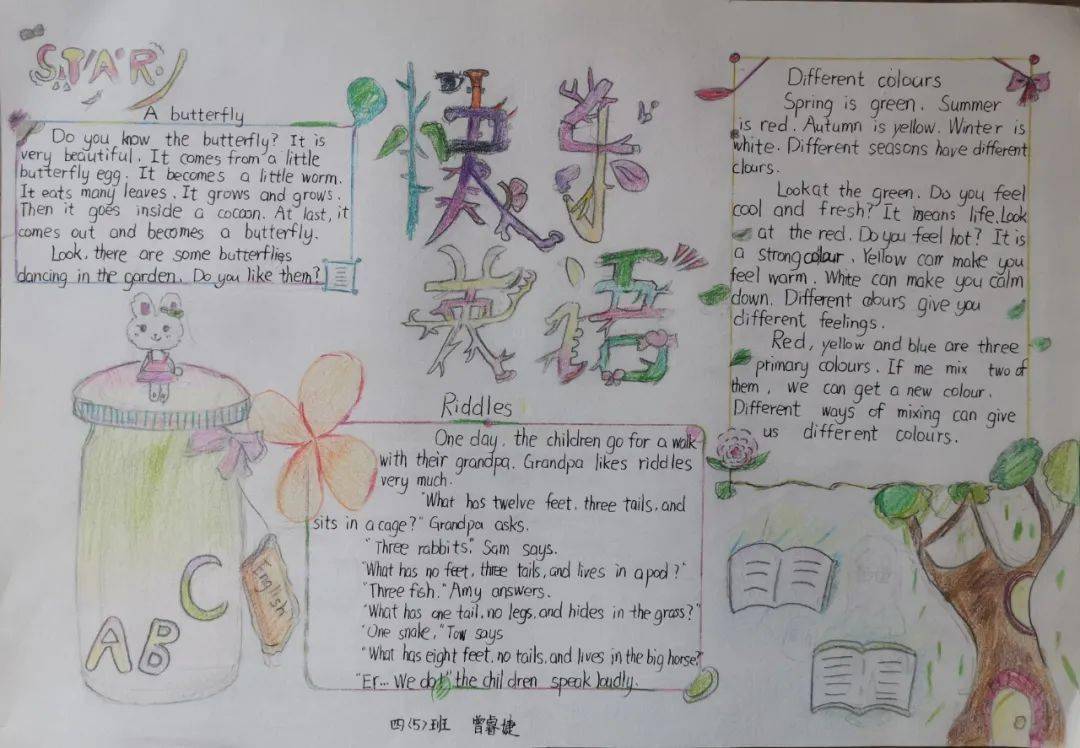 STAR
A butterfly
Do you know the butterfly? It is
very beautiful. It comes from a little
butterfly egg. It becomes a little worm.
It eats many leaves. It grows and grows.
Then it goes inside a cocoon. At last, it
comes out and becomes a butterfly.
Look, there are some butterflies
dancing in the garden. Do you like them?
快乐
英语
Different colours
Spring is green. Summer
is red. Autumn is yellow. Winter is
white. Different seasons have different
clours.
Look at the green. Do you feel
cool and fresh? It means life. Look
at the red. Do you feel hot? It is
a strong colour. Yellow can make you
feel warm. White can make you calm
down. Different olours give you
different feelings.
Red, yellow and blue are three
primary colours. If me mix two of
them, we can get a new colour.
Different ways of mixing can give
us different colours.
Riddles
One day, the children go for a walk
with their grandpa. Grandpa likes riddles
very much.
"What has twelve feet, three tails, and
sits in a cage?" Grandpa asks.
"Three rabbits," Sam says.
"What has no feet, three tails, and lives in a pod?"
"Three fish." Amy answers.
"What has one tail, no legs, and hides in the grass?"
"One snake," Tow says
"What has eight feet, no tails, and lives in the big horse?"
"Er... We do!" the children speak loudly.
English
ABC
四〈5〉班 曾睿婕